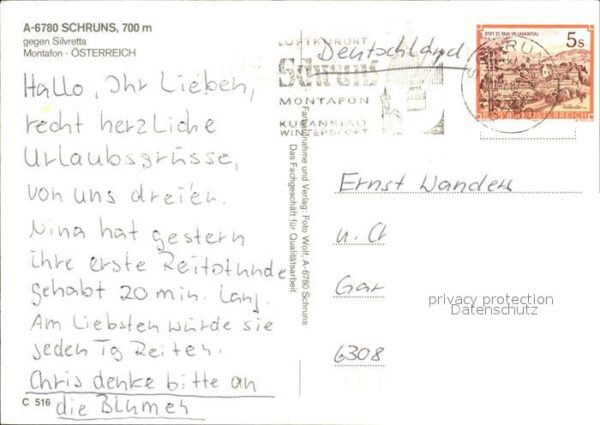 A-6780 SCHRUNS, 700 m
gegen Silvretta
Montafon - ÖSTERREICH
Hallo, Ihr Lieben,
recht herzliche
Urlaubsgrüsse,
von uns dreien.
Nina hat gestern
ihre erste Reitstunde
gehabt 20 min. Lang.
Am Liebsten würde sie
jeden Tg Reiten.
Chris denke bitte an
die Blumen
C 516
Farbaufnahme und Verlag: Foto Wolf, A-6780 Schruns
Das Fachgeschäft für Qualitätsarbeit
LUFTKURORT
Schruns
MONTAFON
KURANSTALT
WINTERSPORT
Deutschland
STIFT ST. PAUL IM LAVANTTAL
5s
REPUBLIK ÖSTERREICH
Ernst Wanden
u. Ch
Gar
6308
privacy protection
Datenschutz